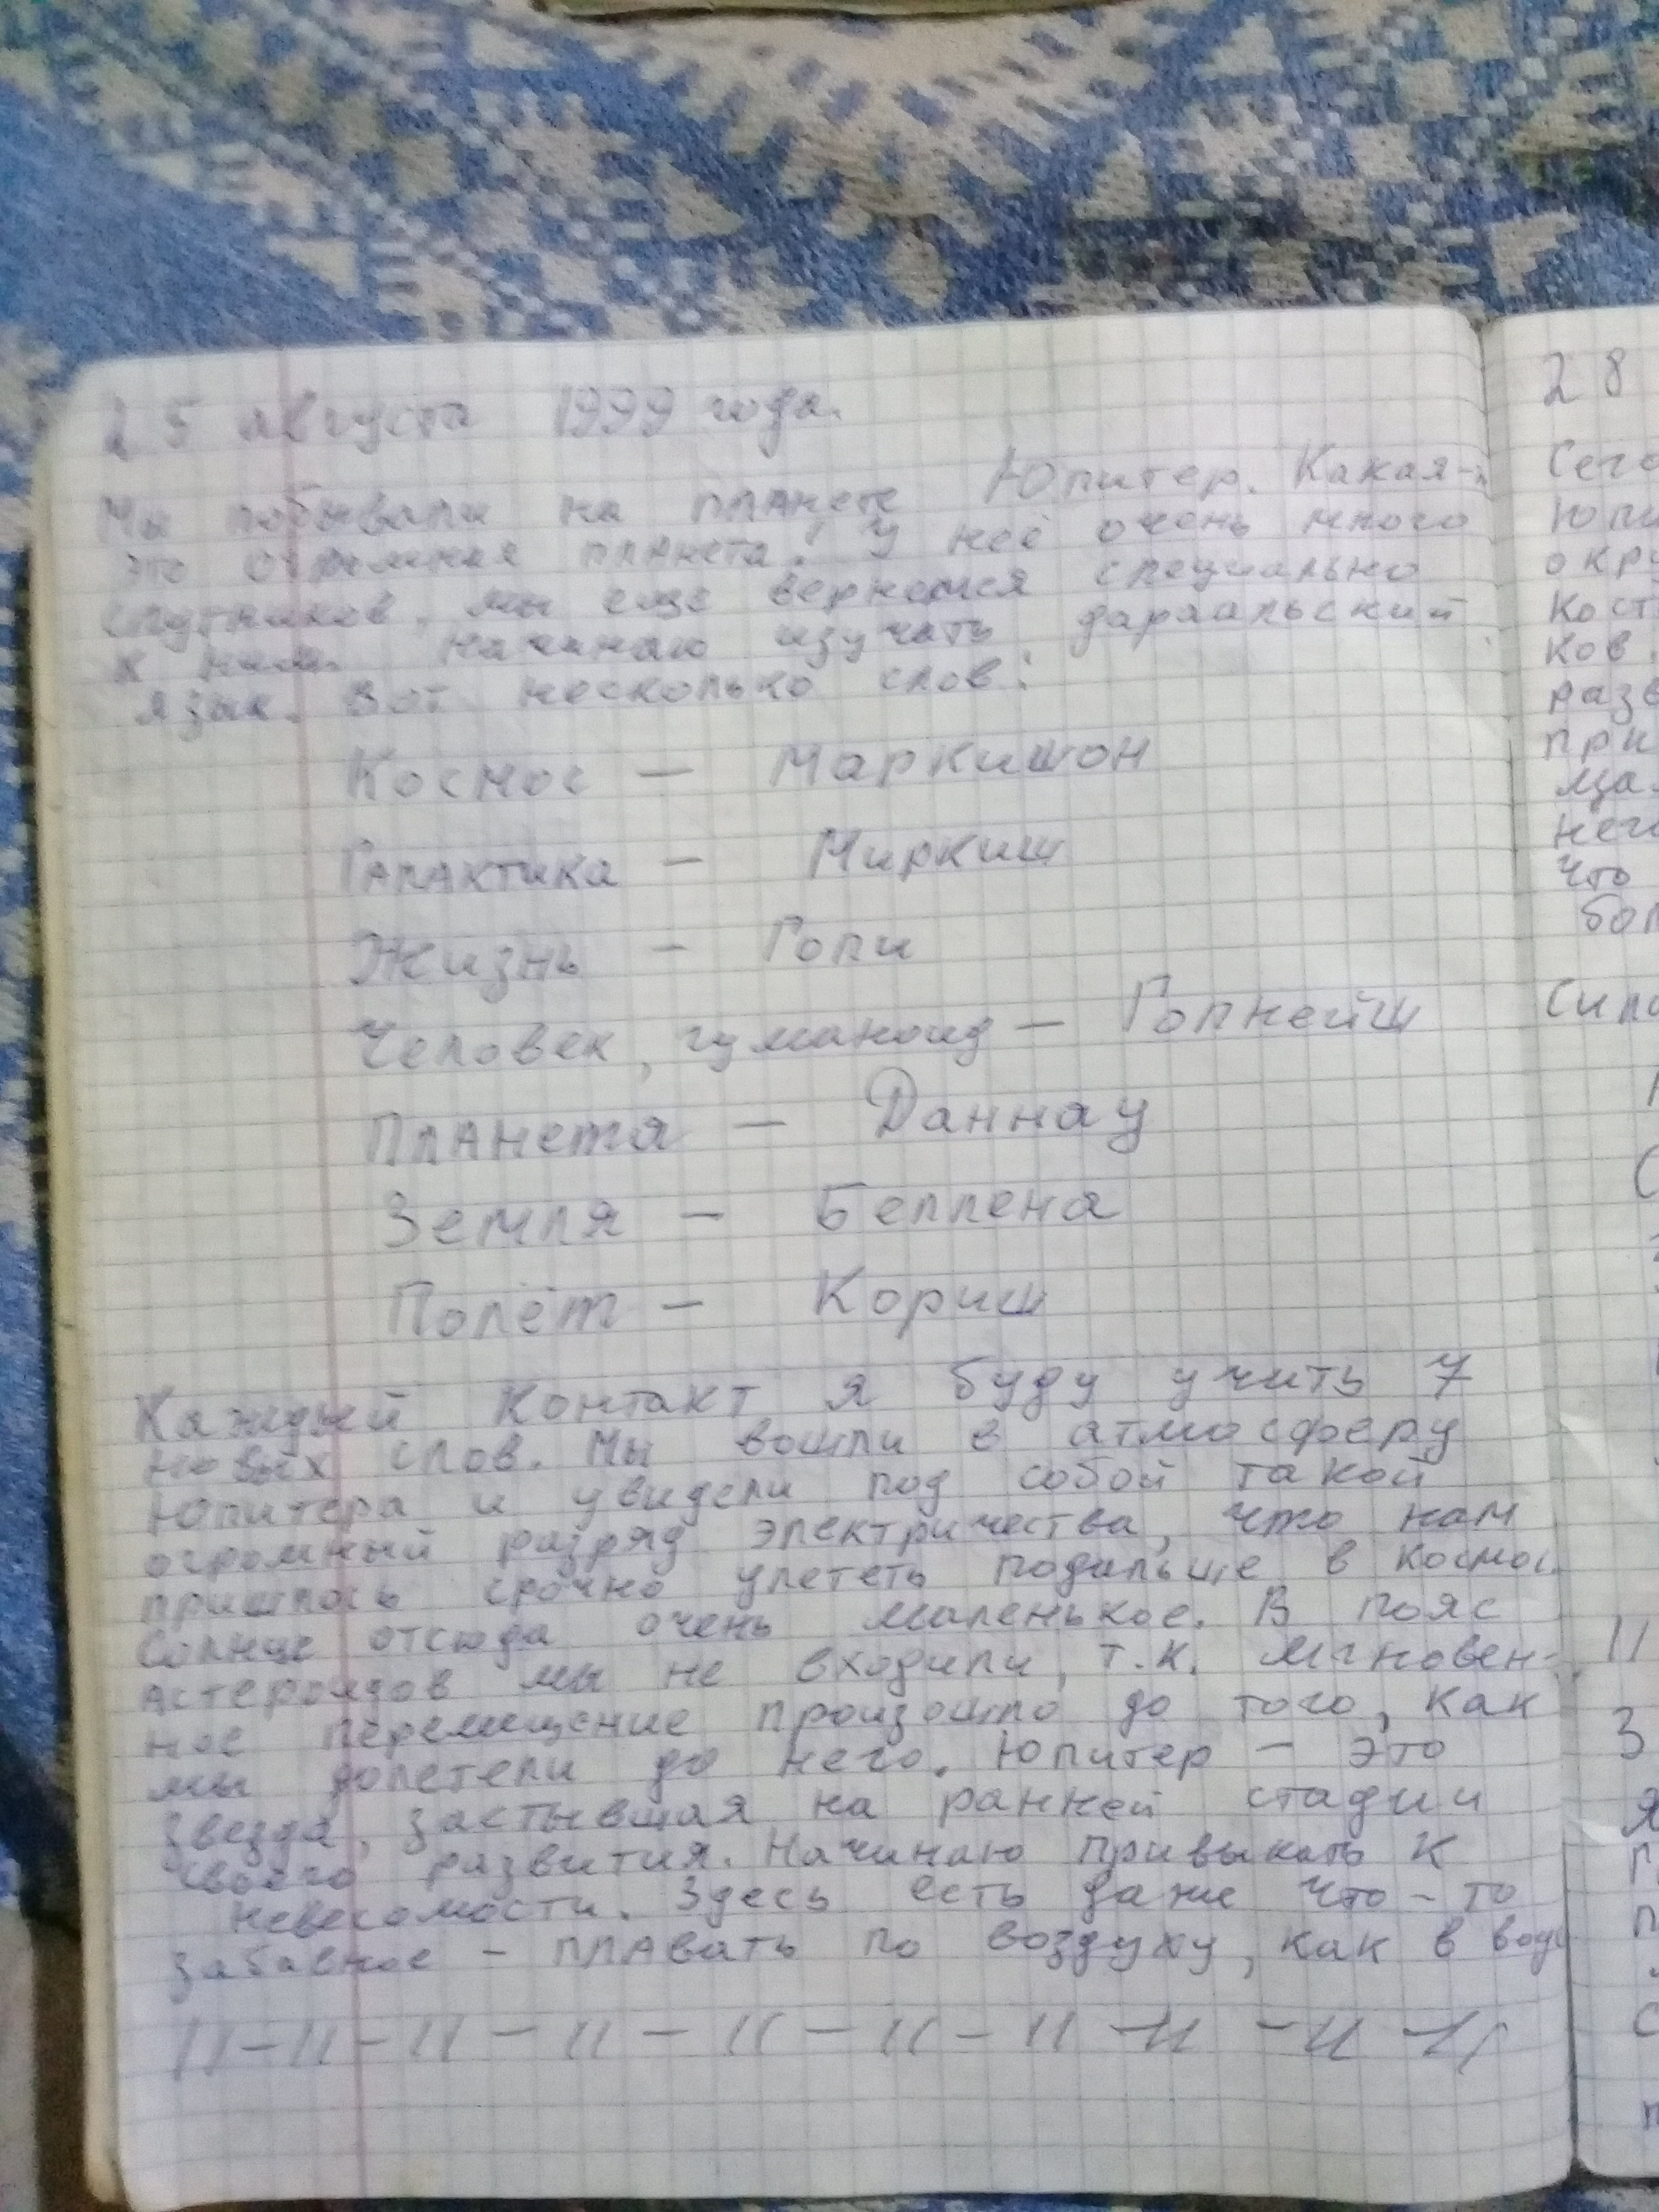 25 августа 1999 года.
Мы побывали на планете Юпитер. Какая-
это огромная планета! У неё очень много
спутников, мы еще вернемся специально
к ним. Начинаю изучать дараальский
язык. Вот несколько слов:
Космос — Маркишон
Галактика — Миркиш
Жизнь — Голи
Человек, гуманоид — Голнейш
Планета — Даннау
Земля — Беллена
Полёт — Кориш
Каждый Контакт я буду учить 7
новых слов. Мы вошли в атмосферу
Юпитера и увидели под собой такой
огромный разряд электричества, что нам
пришлось срочно улететь подальше в космос.
Солнце отсюда очень маленькое. В пояс
астероидов мы не входили, т.к. мгновен-
ное перемещение произошло до того, как
мы долетели до него. Юпитер — это
звезда, застывшая на ранней стадии
своего развития. Начинаю привыкать к
невесомости. Здесь есть даже что-то
забавное - плавать по воздуху, как в воде
28
Сего
Юпи
окру
кост
ков.
разв
при
него
что
бол